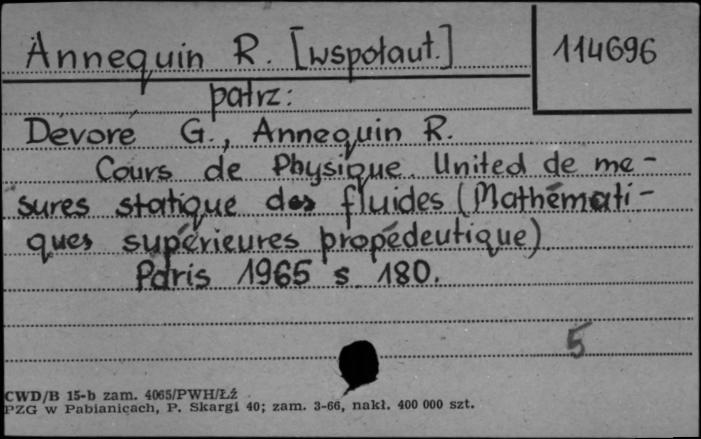 Annequin R. [wspołaut.]
114696
patrz:
Dévoré G., Annequin R.
Cours de Physique. United de me-
sures statique des fluides (Mathémati-
ques supérieures propédeutique)
Paris 1965 s. 180.
5
CWD/B 15-b zam. 4065/PWH/Łź
PZG w Pabianicach, P. Skargi 40; zam. 3-66, nakł. 400 000 szt.